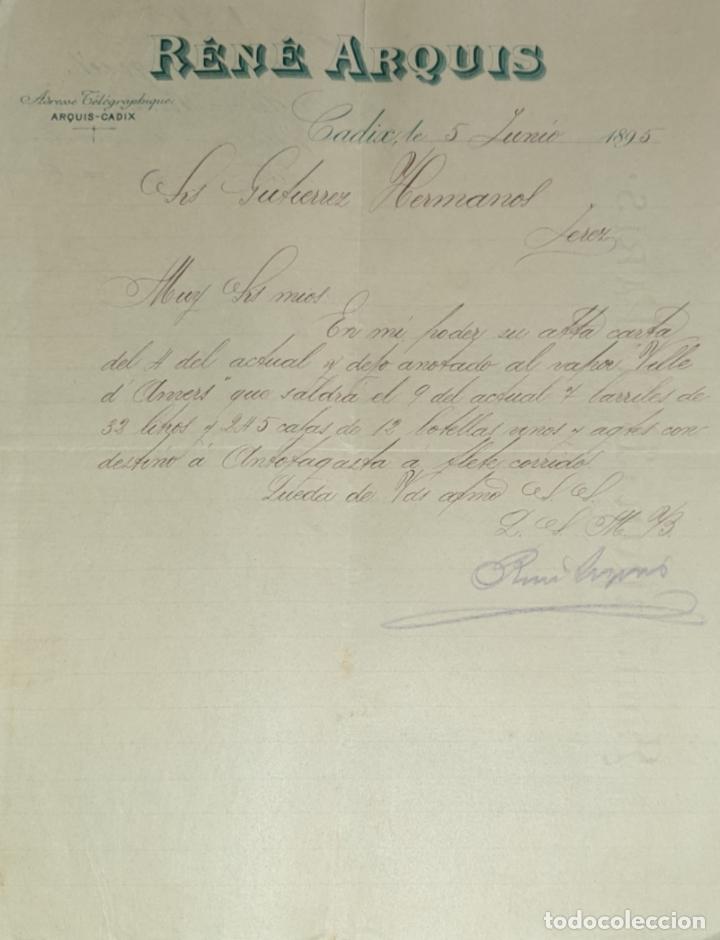 RÊNÊ ARQUIS
Adresse Télégraphique:
ARQUIS-CADIX
Cadix, le 5 Junio 1895
Srs Gutierrez Hermanos
Jerez
Muy Srs mios:
En mi poder su atta carta
del 4 del actual y dejo anotado al vapor "Ville
d'Anvers" que saldrá el 9 del actual 7 barriles de
32 litros y 245 cajas de 12 botellas vinos y agtes con
destino á Antofagasta a flete corrido.
Queda de Vds afmo S. S.
Q. S. M. B.
René Arquis
todocoleccion